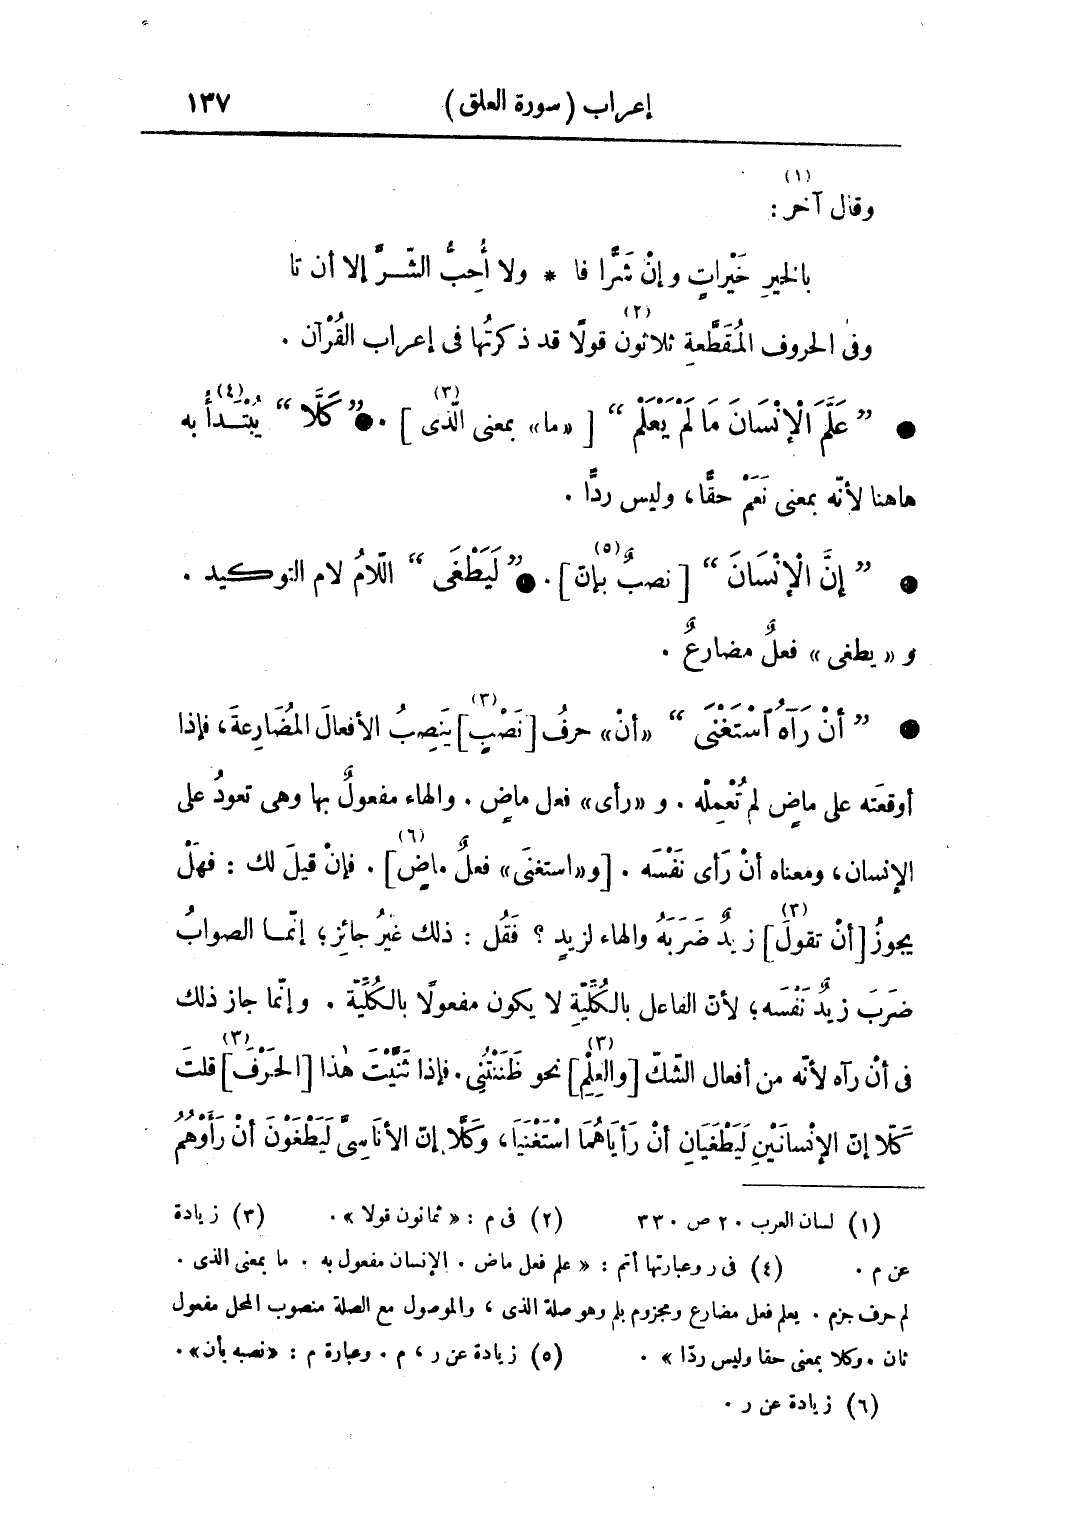 إعراب (سورة العلق) ١٣٧
وقال آخر (١) :
بالخيرِ خَيْراتٍ وإنْ شَرًّا فا * ولا أُحِبُّ الشّــرَّ إلا أن تا
وفى الحروف المُقَطَّعةِ ثلاثون (٢) قولًا قد ذكرتُها فى إعراب القُرْآن .
● ” عَلَّمَ الْإِنْسَانَ مَا لَمْ يَعْلَمْ “ [ «ما» بمعنى الّذى (٣) ] . ● ” كَلَّا “ يُبْتَــدأُ (٤) به
هاهنا لأنّه بمعنى نَعَمْ حقًّا، وليس ردًّا .
● ” إِنَّ الْإِنْسَانَ “ [ نصبٌ (٥) بإنّ ] . ● ” لَيَطْغَى “ اللّامُ لام التوكيد .
و « يطغى » فعلٌ مضارعٌ .
● ” أنْ رَآهُ ٱسْتَغْنَى “ «أنْ» حرفُ [نَصْبٍ (٣)] يَنصِبُ الأفعالَ المُضَارِعةَ، فإذا
أوقعتَه على ماضٍ لم تُعْمِلْه . و «رأى» فعل ماضٍ . والهاء مفعولٌ بها وهى تعودُ على
الإنسان، ومعناه أنْ رَأى نَفْسَه . [و«استغنَى» فعلٌ ماضٍ (٦)] . فإنْ قيلَ لك : فهلْ
يجوزُ [أنْ تقولَ (٣)] زيدٌ ضَرَبَهُ والهاء لزيدٍ ؟ فَقُل : ذلك غيرُ جائزٍ؛ إنّمــا الصوابُ
ضرَبَ زيدٌ نَفْسَه؛ لأنّ الفاعل بالكُلِّيّةِ لا يكون مفعولًا بالكُلِّيّة . وإنّما جاز ذلك
فى أنْ رآه لأنّه من أفعال الشّكّ [والعِلْمِ (٣)] نحو ظَنَنْتُنِى . فإذا ثَنَّيْتَ هٰذا [الحَرْفَ (٣)] قلتَ
كَلّا إنّ الإنْسانَيْنِ لَيَطْغَيَانِ أنْ رَأيَاهُمَا اسْتَغْنَيَا، وكَلَّا إنّ الأنَاسِىَّ لَيَطْغَوْنَ أنْ رَأَوْهُمُ
(١) لسان العرب ٢٠ ص ٣٣٠ (٢) فى م : « ثمانون قولا » . (٣) زيادة
عن م . (٤) فى ر وعبارتها أتم : « علم فعل ماض . الإنسان مفعول به . ما بمعنى الذى .
لم حرف جزم . يعلم فعل مضارع ومجزوم بلم وهو صلة الذى ، والموصول مع الصلة منصوب المحل مفعول
ثان . وكلا بمعنى حقا وليس ردّا » . (٥) زيادة عن ر ، م . وعبارة م : «نصبه بأن» .
(٦) زيادة عن ر .